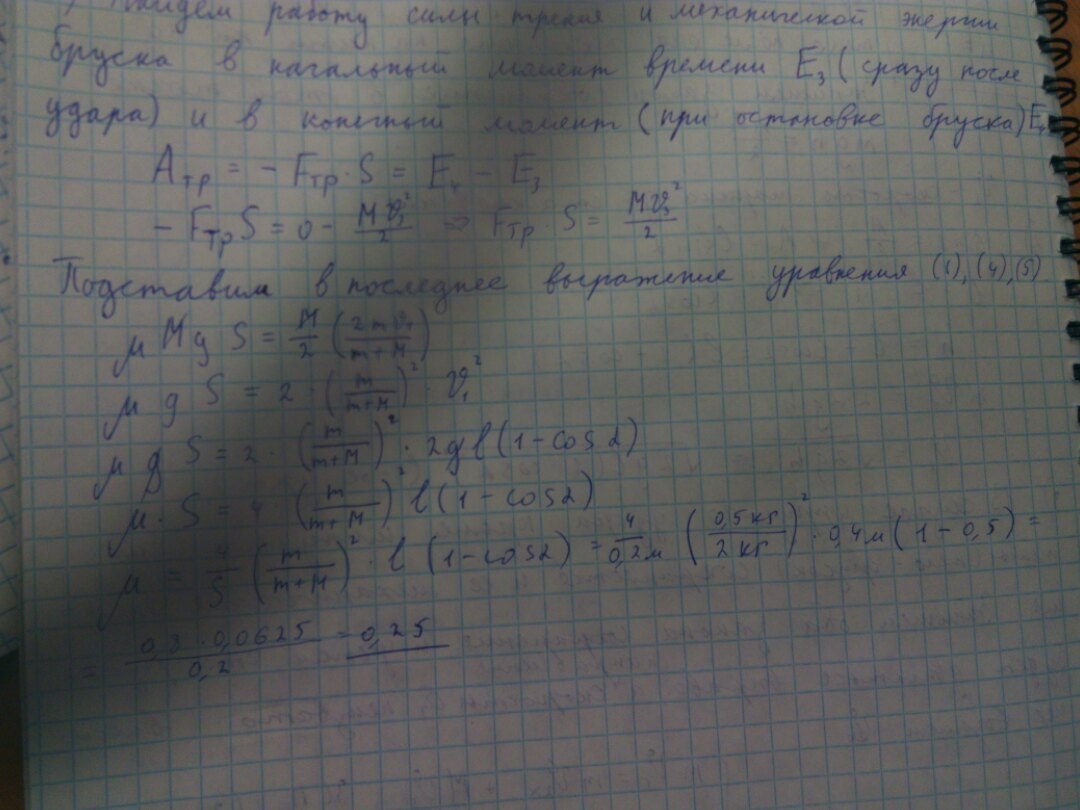 Найдем работу силы трения и механической энергии
бруска в начальный момент времени E₃ (сразу после
удара) и в конечный момент (при остановке бруска) E₄
Aтр = - Fтр · S = E₄ - E₃
- Fтр S = 0 - Mϑ₃²/2 => Fтр · S = Mϑ₃²/2
Подставим в последнее выражение уравнения (1), (4), (5)
μ M g S = M/2 (2mϑ₁/(m+M))²
μ g S = 2 · (m/(m+M))² · ϑ₁²
μ g S = 2 · (m/(m+M))² · 2gl(1-cosα)
μ · S = 4 · (m/(m+M))² l(1-cosα)
μ = 4/S (m/(m+M))² · l (1-cosα) = 4/0,2м (0,5кг/2кг)² · 0,4м (1-0,5) =
= 0,8 · 0,0625/0,2 = 0,25